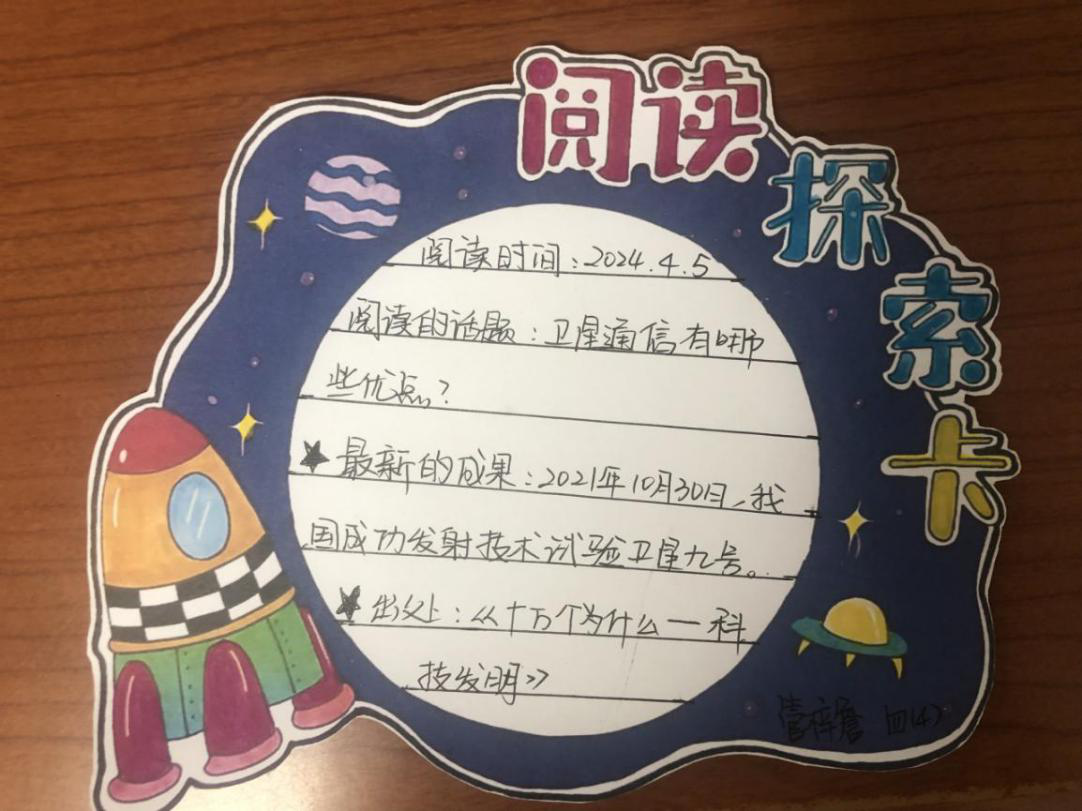 阅读探索卡
阅读时间：2024.4.5
阅读的话题：卫星通信有哪
些优点？
★最新的成果：2021年10月30日，我
国成功发射技术试验卫星九号。
★出处：《十万个为什么—科
技发明》
管梓詹 四(4)